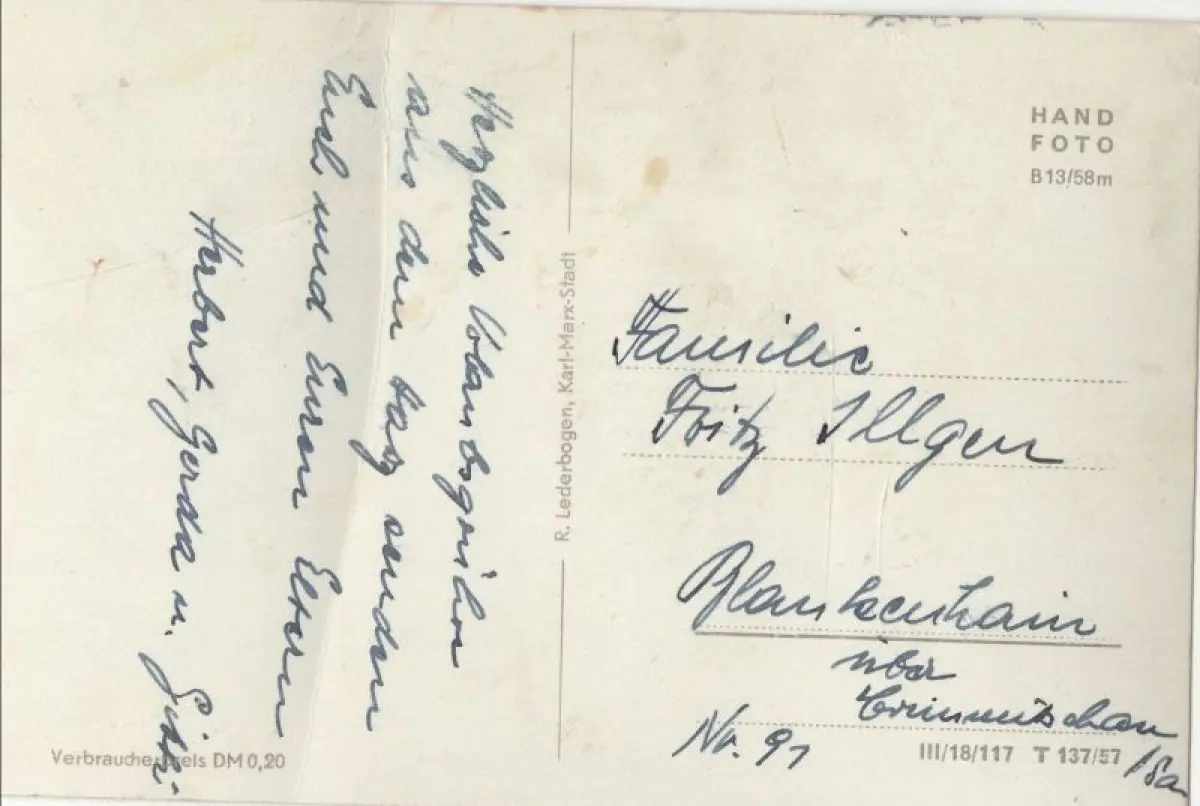 Herzliche Urlaubsgrüße
aus dem Harz senden
Euch und Euren Eltern
Herbert, Gerda u. Gitti
Verbraucherpreis DM 0,20
R. Lederbogen, Karl-Marx-Stadt
HAND
FOTO
B 13/58 m
Familie
Fritz Illgen
Blankenhain
über
Crimmitschau
/Sa
Nr. 91
III/18/117 T 137/57